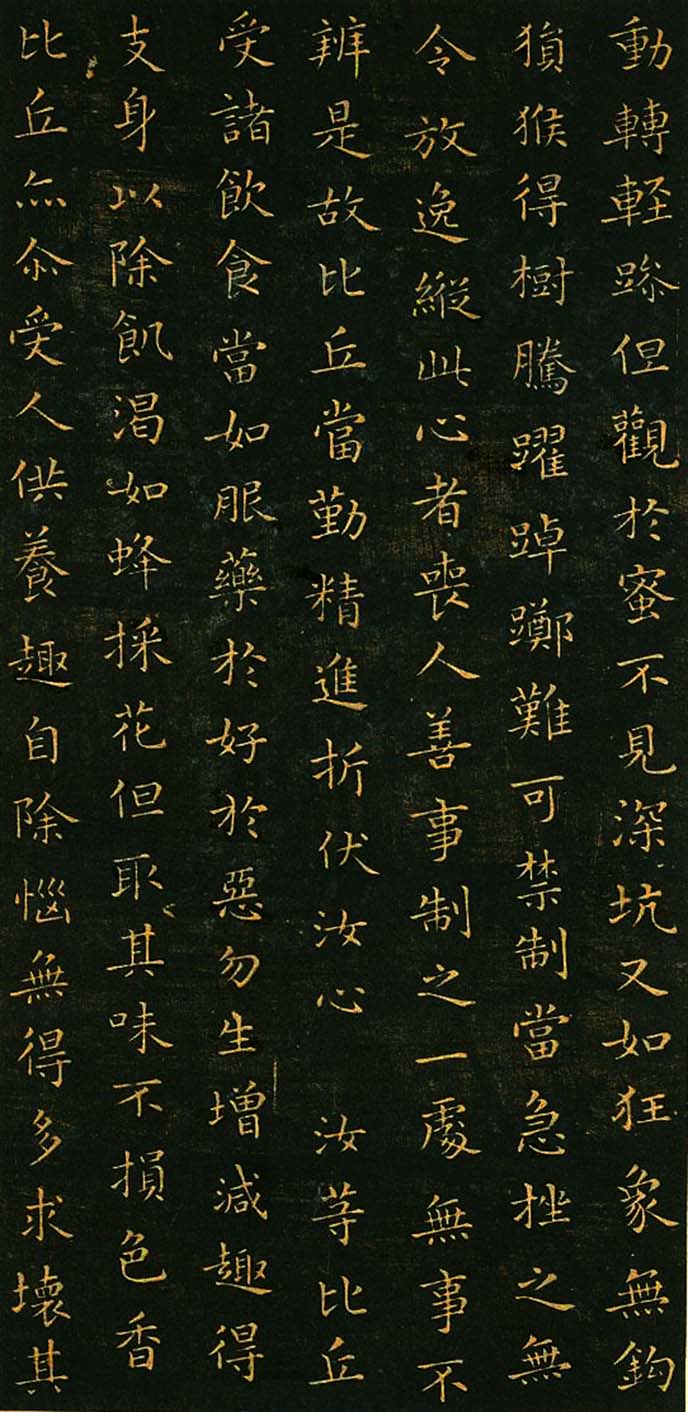 動轉軽躁但觀於蜜不見深坑又如狂象無鉤
猨猴得樹騰躍踔躑難可禁制當急挫之無
令放逸縱此心者喪人善事制之一處無事不
辦是故比丘當勤精進折伏汝心　汝等比丘
受諸飲食當如服藥於好於惡勿生增減趣得
支身以除飢渴如蜂採花但取其味不損色香
比丘亦尒受人供養趣自除惱無得多求壞其